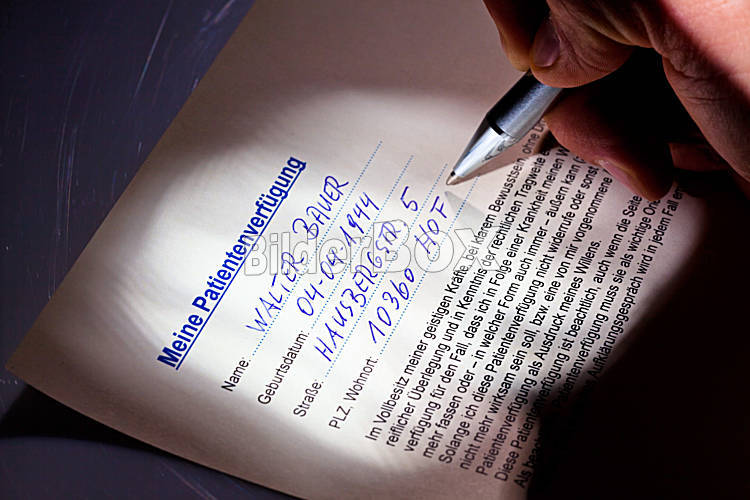 Meine Patientenverfügung
Name: WALTER BAUER
Geburtsdatum: 04-04-1944
Straße: HAUSBERGSTR 5
PLZ, Wohnort: 10360 HOF
Im Vollbesitz meiner geistigen Kräfte, bei klarem Bewusstsein, ohne
reiflicher Überlegung und in Kenntnis der rechtlichen Tragweite
verfügung für den Fall, dass ich in Folge einer Krankheit meinen
mehr fassen oder – in welcher Form auch immer – äußern kann
Solange ich diese Patientenverfügung nicht widerrufe oder sonst
nicht mehr wirksam sein soll, bzw. eine von mir vorgenommene
Diese Patientenverfügung ist beachtlich, auch wenn die Seite
Patientenverfügung als Ausdruck meines Willens.
Als Patientenverfügung muss sie als wichtige
Aufklärungsgespräch wird in jedem Fall
BilderBOX